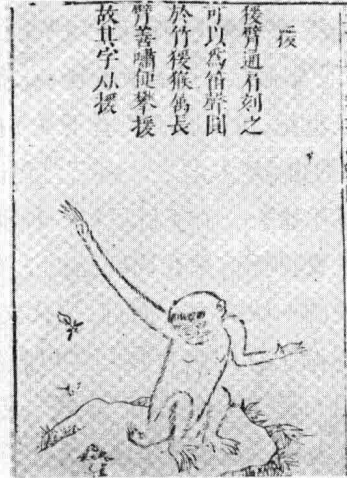 猨
猨臂通肩刻之
可以爲笛聲圓
於竹猨猴屬長
臂善嘯便攀援
故其字从援